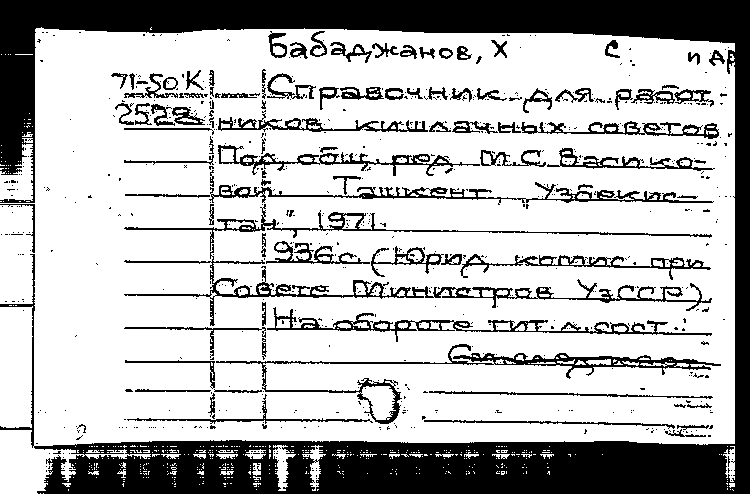 Бабаджанов, Х С. и др
71-50К Справочник для работ-
2528 ников кишлачных советов.
Под общ. ред. М.С. Васико-
вой. Ташкент, "Узбекис-
тан", 1971.
936 с. (Юрид. комис. при
Совете Министров УзССР)
На обороте тит. л. сост.:
См. след. карт.